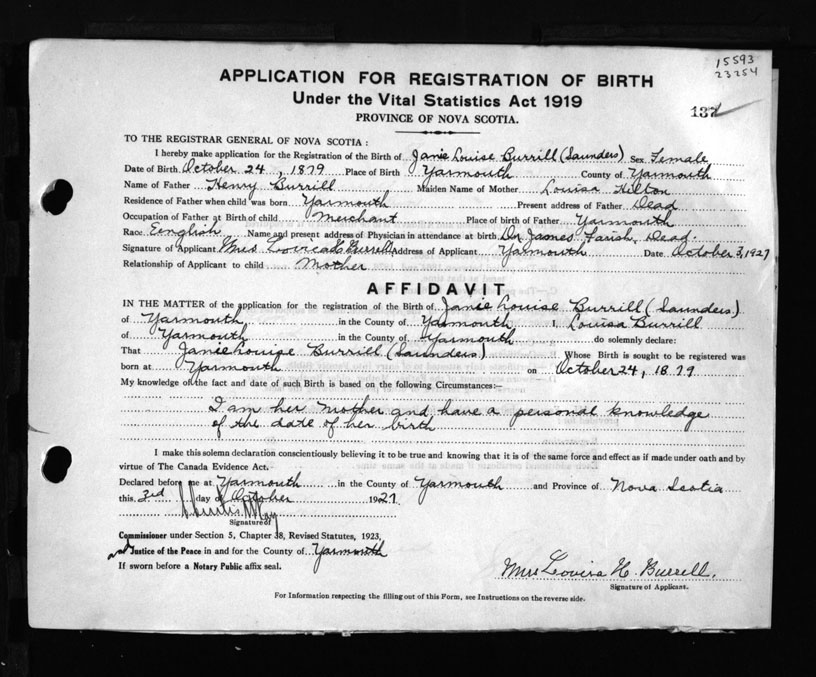 15593
23254
APPLICATION FOR REGISTRATION OF BIRTH
Under the Vital Statistics Act 1919
PROVINCE OF NOVA SCOTIA.
137
TO THE REGISTRAR GENERAL OF NOVA SCOTIA :
I hereby make application for the Registration of the Birth of Janie Louise Burrill (Saunders) Sex Female
Date of Birth October 24, 1879 Place of Birth Yarmouth County of Yarmouth
Name of Father Henry Burrill Maiden Name of Mother Louisa Hilton
Residence of Father when child was born Yarmouth Present address of Father Dead
Occupation of Father at Birth of child Merchant Place of birth of Father Yarmouth
Race Eenglish Name and present address of Physician in attendance at birth Dr James Farish, Dead
Signature of Applicant Mrs Lovica H Burrell Address of Applicant Yarmouth Date October 3, 1927
Relationship of Applicant to child Mother
AFFIDAVIT
IN THE MATTER of the application for the registration of the Birth of Janie Louise Burrill (Saunders)
of Yarmouth in the County of Yarmouth I, Louisa Burrill
of Yarmouth in the County of Yarmouth do solemnly declare:
That Janie Louise Burrill (Saunders) Whose Birth is sought to be registered was
born at Yarmouth on October 24, 1879
My knowledge of the fact and date of such Birth is based on the following Circumstances:—
I am her mother and have a personal knowledge
of the date of her birth
I make this solemn declaration conscientiously believing it to be true and knowing that it is of the same force and effect as if made under oath and by
virtue of The Canada Evidence Act.
Declared before me at Yarmouth in the County of Yarmouth and Province of Nova Scotia
this 3rd day of October 1927
Signature of
Commissioner under Section 5, Chapter 38, Revised Statutes, 1923,
and Justice of the Peace in and for the County of Yarmouth
If sworn before a Notary Public affix seal.
Mrs Lovisa H. Burrell,
Signature of Applicant.
For Information respecting the filling out of this Form, see Instructions on the reverse side.